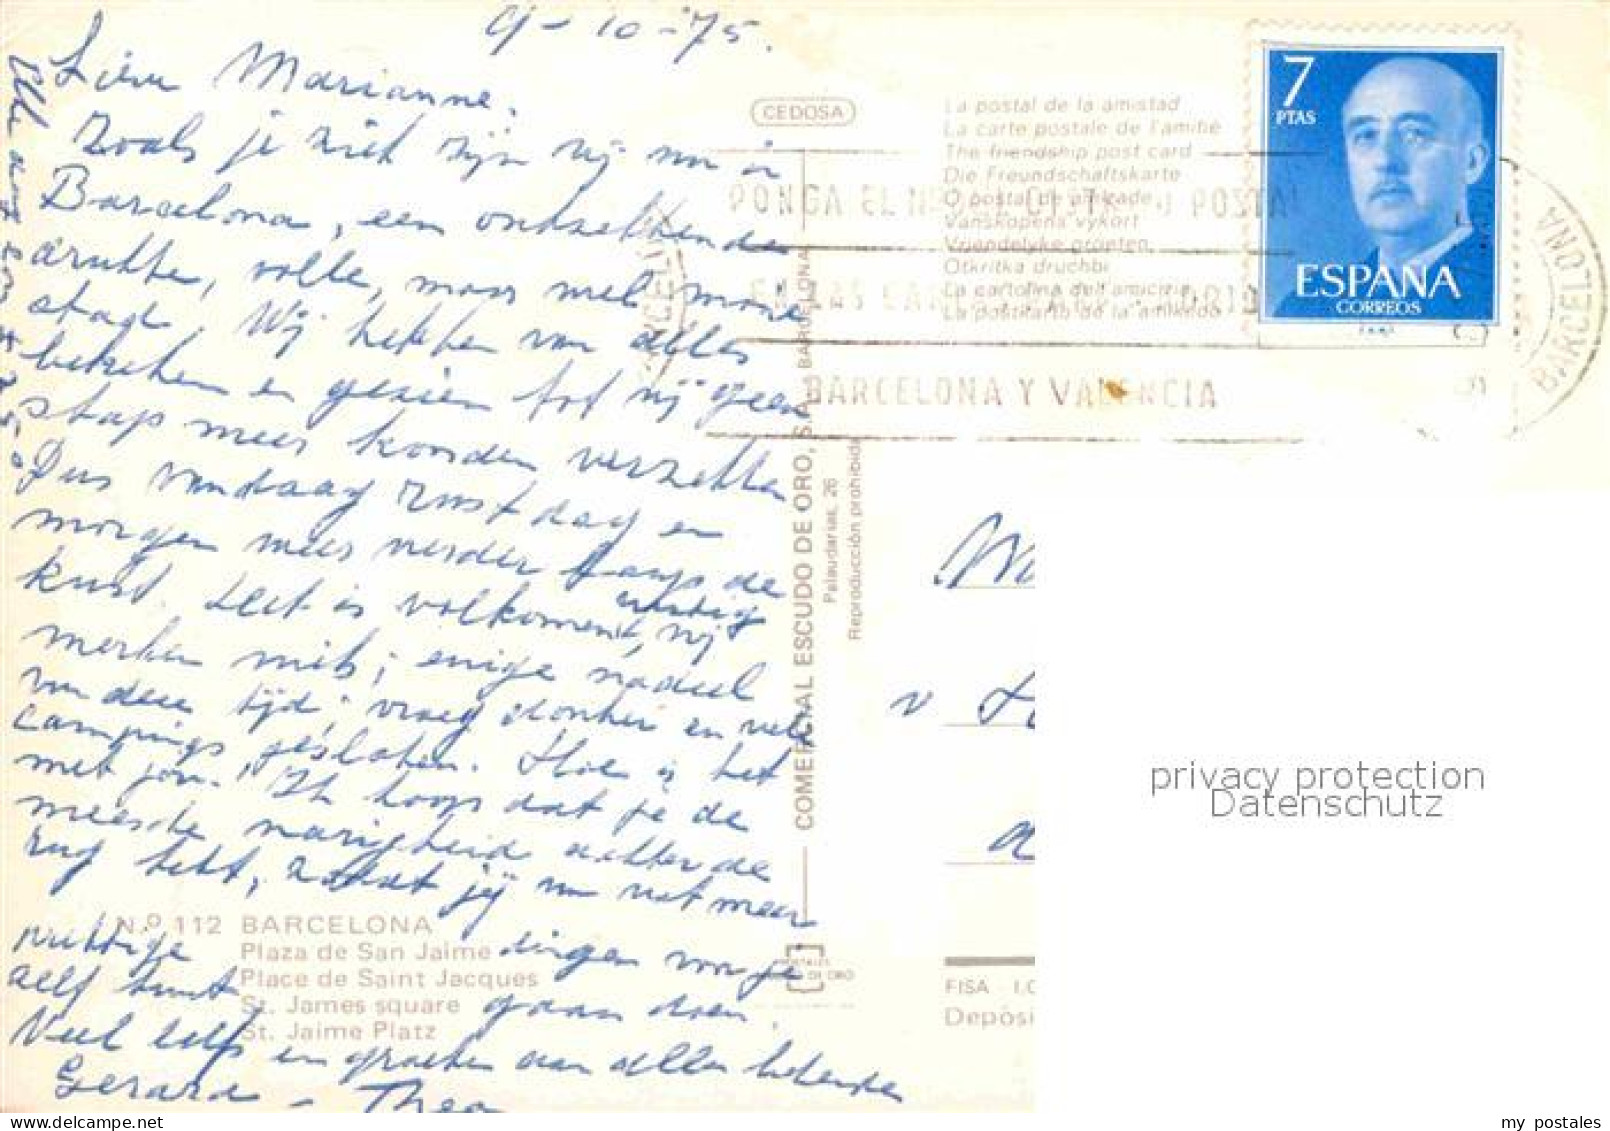 9-10-'75.
Lieve Marianne.
Zoals je ziet zijn wij nu in
Barcelona, een ontzettende
drukke, volle, maar wel mooie
stad. Wij hebben van alles
bekeken en gezien tot wij geen
stap meer konden verzetten
Dus vandaag rustdag en
morgen weer verder langs de
kust. Het is volkomen rustig, wij
merken niets; enige nadeel
van deze tijd; vroeg donker en vele
campings gesloten. Hoe is het
met jou. Ik hoop dat je de
meeste narigheid achter de
rug hebt, zodat jij nu wat meer
prettige dingen voor je
zelf kunt gaan doen.
Veel liefs en groeten aan allen bekenden
Gerard - Theo
CEDOSA
La postal de la amistad
La carte postale de l'amitié
The friendship post card
Die Freundschaftskarte
O postal de amizade
Vänskapens vykort
Vriendelyke groeten
Otkritka druchbi
La cartolina dell'amicizia
La postkarto de la amikedo
PONGA EL POSTAL
EN LAS
BARCELONA Y VALENCIA
BARCELONA
BARCELONA
7
PTAS
ESPAÑA
CORREOS
COMERCIAL ESCUDO DE ORO, S.A. BARCELONA
Palaudarias, 26
Reproducción prohibida
N.º 112 BARCELONA
Plaza de San Jaime
Place de Saint Jacques
St. James square
St. Jaime Platz
FISA - I.G
Depósi
privacy protection
Datenschutz
www.delcampe.net
my_postales